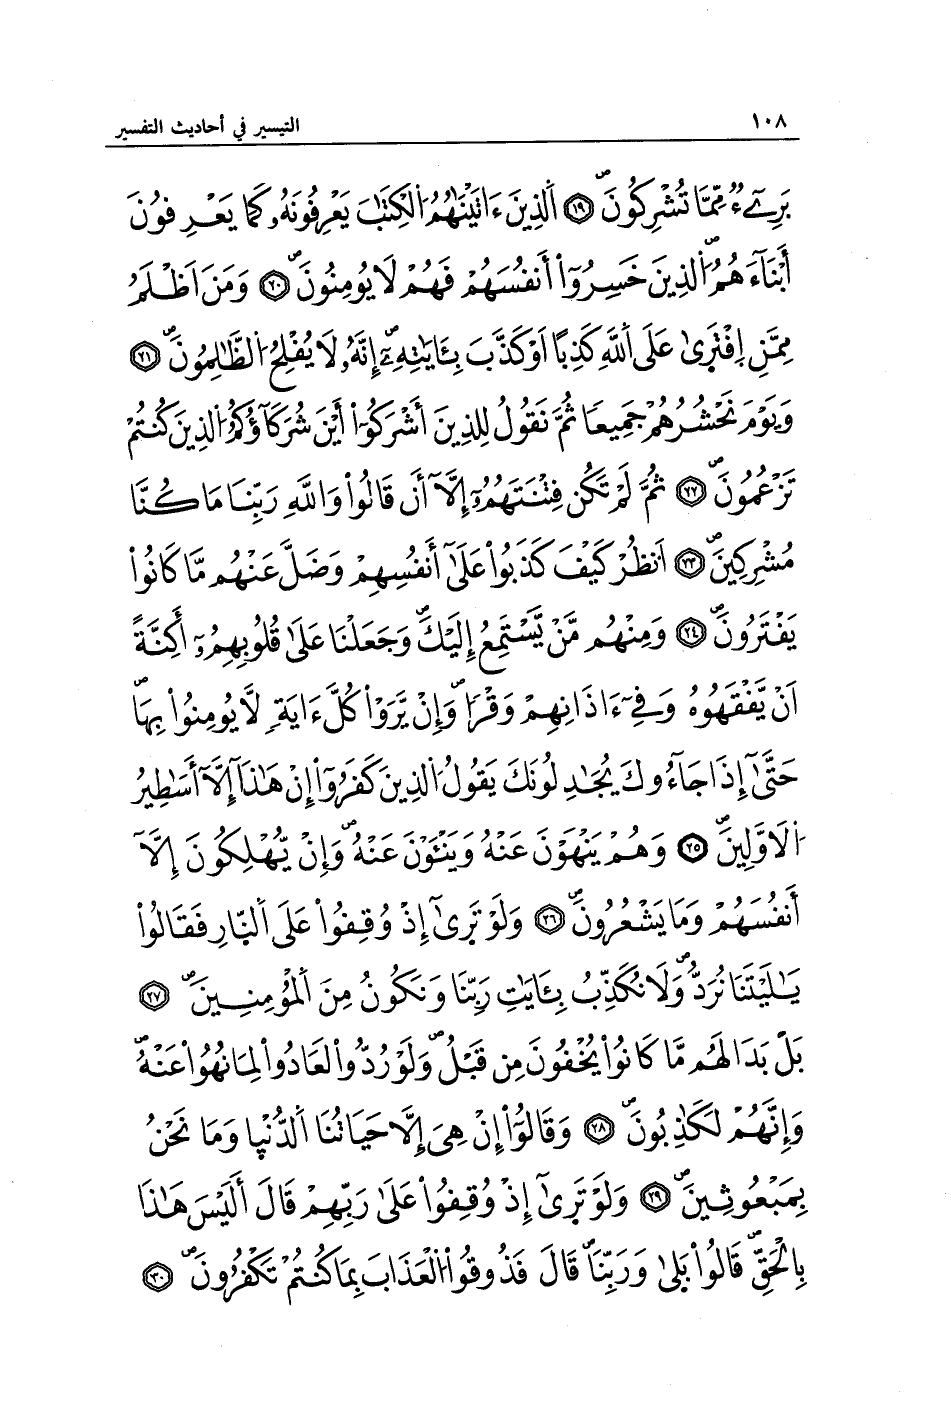 ١٠٨ التيسير في أحاديث التفسير
بَرِےٓءٞ مِّمَّا تُشْرِكُونَۖ ١٩ اَ۬لذِينَ ءَاتَيْنَٰهُمُ اُ۬لْكِتَٰبَ يَعْرِفُونَهُۥ كَمَا يَعْرِفُونَ
أَبْنَآءَهُمُۖ اُ۬لذِينَ خَسِرُوٓاْ أَنفُسَهُمْ فَهُمْ لَا يُومِنُونَۖ ٢٠ وَمَنَ اَظْلَمُ
مِمَّنِ اِ۪فْتَر۪يٰ عَلَي اَ۬للَّهِ كَذِبًا اَوْ كَذَّبَ بِـَٔايَٰتِهِۦٓۖ إِنَّهُۥ لَا يُفْلِحُ اُ۬لظَّٰلِمُونَۖ ٢١
وَيَوْمَ نَحْشُرُهُمْ جَمِيعاٗ ثُمَّ نَقُولُ لِلذِينَ أَشْرَكُوٓاْ أَيْنَ شُرَكَآؤُكُمُ اُ۬لذِينَ كُنتُمْ
تَزْعُمُونَۖ ٢٢ ثُمَّ لَمْ تَكُن فِتْنَتَهُمُۥٓ إِلَّآ أَن قَالُواْ وَاللَّهِ رَبِّنَا مَا كُنَّا
مُشْرِكِينَۖ ٢٣ اَنظُرْ كَيْفَ كَذَبُواْ عَلَيٰٓ أَنفُسِهِمْ وَضَلَّ عَنْهُم مَّا كَانُواْ
يَفْتَرُونَۖ ٢٤ وَمِنْهُم مَّنْ يَّسْتَمِعُ إِلَيْكَۖ وَجَعَلْنَا عَلَيٰ قُلُوبِهِمُۥٓ أَكِنَّةً
اَنْ يَّفْقَهُوهُ وَفِےٓ ءَاذَانِهِمْ وَقْراٗۖ وَإِنْ يَّرَوْاْ كُلَّ ءَايَةٖ لَّا يُومِنُواْ بِهَاۖ
حَتَّيٰٓ إِذَا جَآءُوكَ يُجَٰدِلُونَكَ يَقُولُ اُ۬لذِينَ كَفَرُوٓاْ إِنْ هَٰذَآ إِلَّآ أَسَٰطِيرُ
اُ۬لَاوَّلِينَۖ ٢٥ وَهُمْ يَنْهَوْنَ عَنْهُ وَيَنْـَٔوْنَ عَنْهُۖ وَإِنْ يُّهْلِكُونَ إِلَّآ
أَنفُسَهُمْ وَمَا يَشْعُرُونَۖ ٢٦ وَلَوْ تَر۪يٰٓ إِذْ وُقِفُواْ عَلَي اَ۬لنّ۪ارِ فَقَالُواْ
يَٰلَيْتَنَا نُرَدُّۖ وَلَا نُكَذِّبُ بِـَٔايَٰتِ رَبِّنَا وَنَكُونُ مِنَ اَ۬لْمُؤْمِنِينَۖ ٢٧
بَلْ بَدَا لَهُم مَّا كَانُواْ يُخْفُونَ مِن قَبْلُۖ وَلَوْ رُدُّواْ لَعَادُواْ لِمَا نُهُواْ عَنْهُۖ
وَإِنَّهُمْ لَكَٰذِبُونَۖ ٢٨ وَقَالُوٓاْ إِنْ هِيَ إِلَّا حَيَاتُنَا اَ۬لدُّنْي۪ا وَمَا نَحْنُ
بِمَبْعُوثِينَۖ ٢٩ وَلَوْ تَر۪يٰٓ إِذْ وُقِفُواْ عَلَيٰ رَبِّهِمْ قَالَ أَلَيْسَ هَٰذَا
بِالْحَقِّۖ قَالُواْ بَلَيٰ وَرَبِّنَاۖ قَالَ فَذُوقُواْ اُ۬لْعَذَابَ بِمَا كُنتُمْ تَكْفُرُونَۖ ٣٠